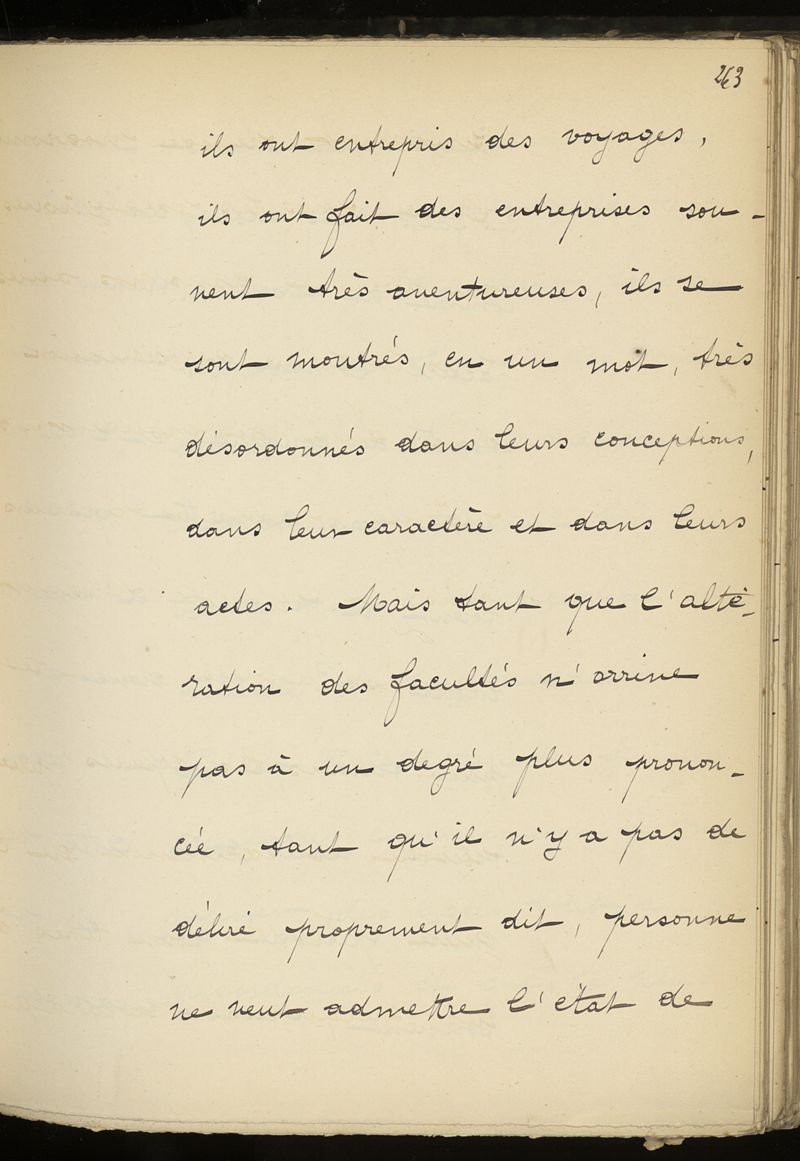 263
ils ont entrepris des voyages,
ils ont fait des entreprises sou-
vent très aventureuses, ils se
sont montrés, en un mot, très
désordonnés dans leurs conceptions,
dans leur caractère et dans leurs
actes. Mais tant que l'alté-
ration des facultés n'arrive
pas à un degré plus pronon-
cée, tant qu'il n'y a pas de
déliré proprement dit, personne
ne veut admettre l'état de